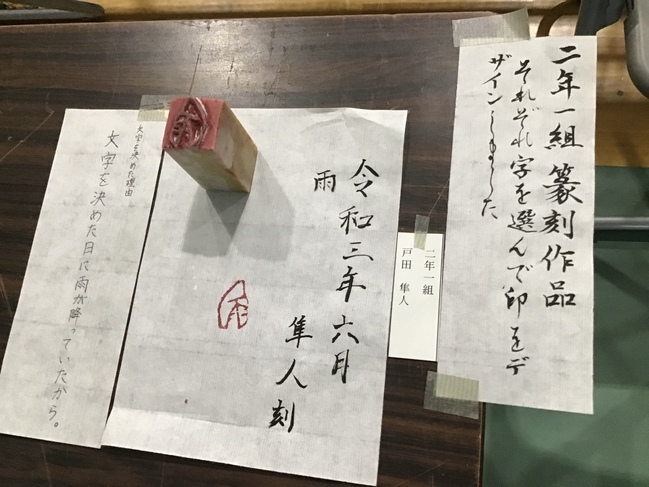 二年一組篆刻作品
それぞれ字を選んで印をデ
ザインしました
二年一組
戸田 隼人
令和三年六月
隼人刻
雨
文字を決めた理由
文字を決めた日に雨が降っていたから。